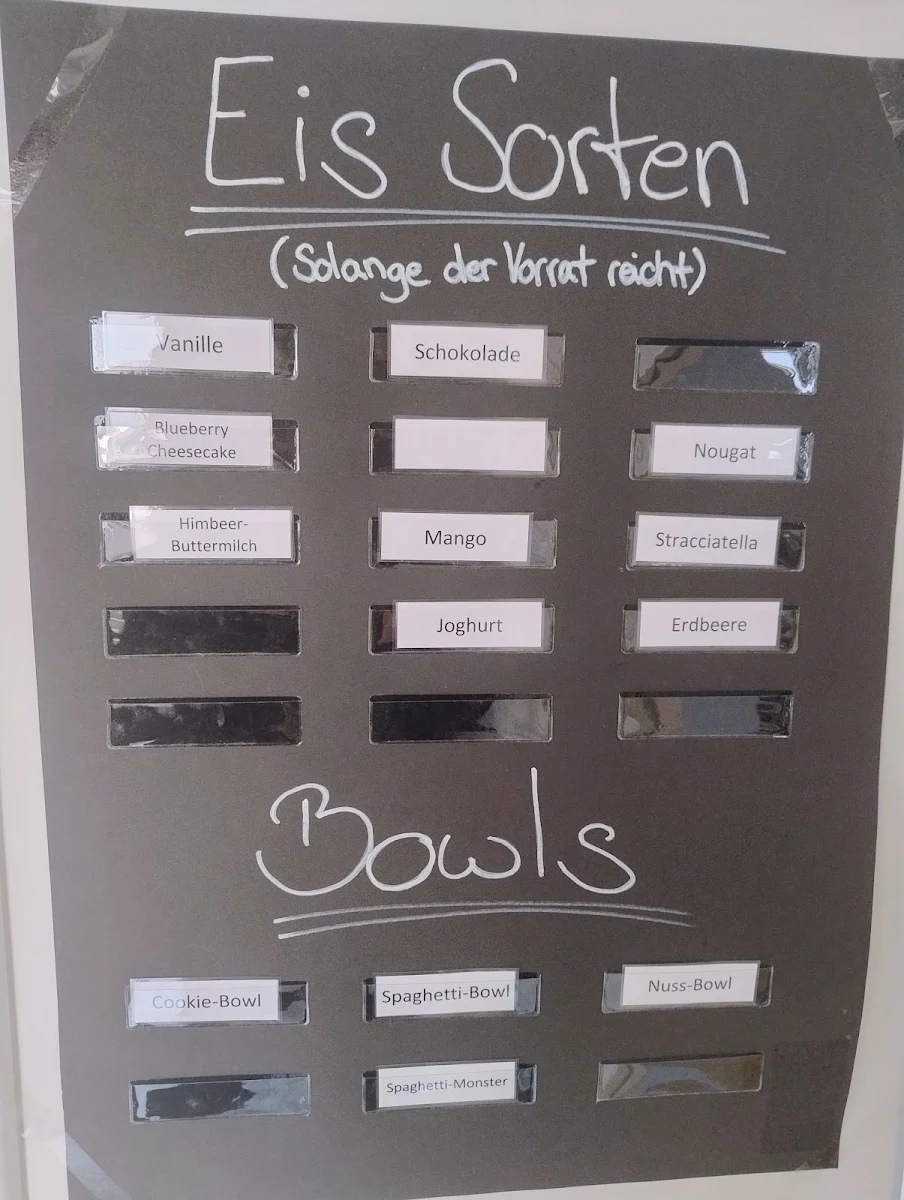 Eis Sorten
(Solange der Vorrat reicht)
Vanille
Schokolade
Blueberry
Cheesecake
Nougat
Himbeer-
Buttermilch
Mango
Stracciatella
Joghurt
Erdbeere
Bowls
Cookie-Bowl
Spaghetti-Bowl
Nuss-Bowl
Spaghetti-Monster